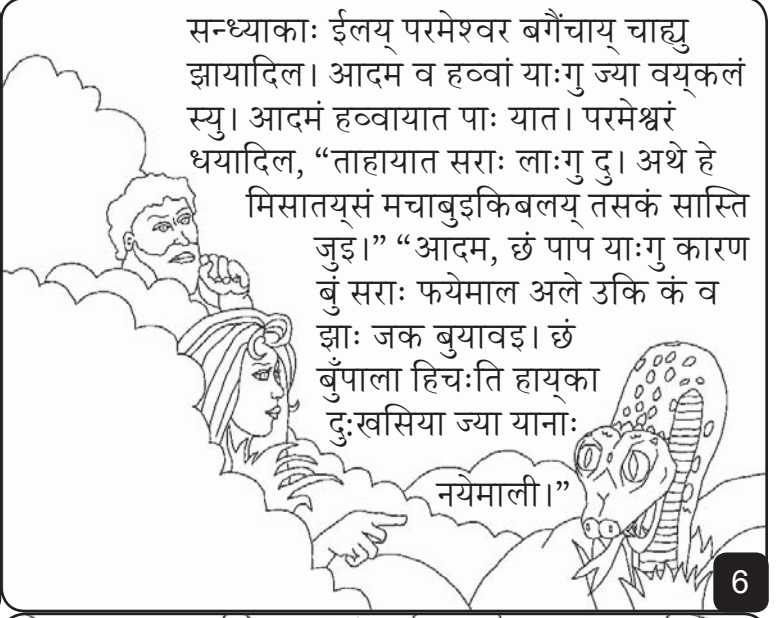 सन्ध्याकाः ईलय् परमेश्वर बगैंचाय् चाह्यु
झायादिल। आदम व हव्वां याःगु ज्या वय्‌कलं
स्यु। आदमं हव्वायात पाः यात। परमेश्वरं
धयादिल, “ताहायात सराः लाःगु दु। अथे हे
मिसातय्‌सं मचाबुइकिबलय् तसकं सास्ति
जुइ।” “आदम, छं पाप याःगु कारण
बुं सराः फयेमाल अले उकि कं व
झाः जक बुयावइ। छं
बुँपाला हिचःति हाय्‌का
दुःखसिया ज्या यानाः
नयेमाली।”
6